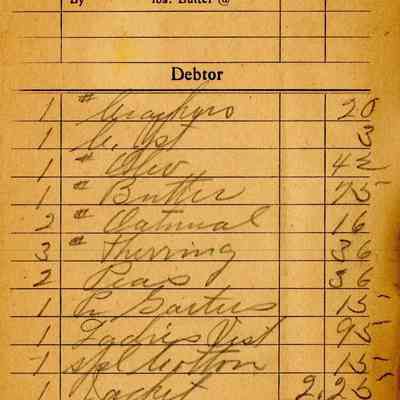 By lbs. Butter @
Debtor
1 # 20
1 3
1 # Oleo 42
1 # Butter 75
2 # Oatmeal 16
3 # Herring 36
2 Peas 36
1 Pr Garters 15
1 Ladies Vest 95
1 spl Cotton 15
1 Jacket 2.25